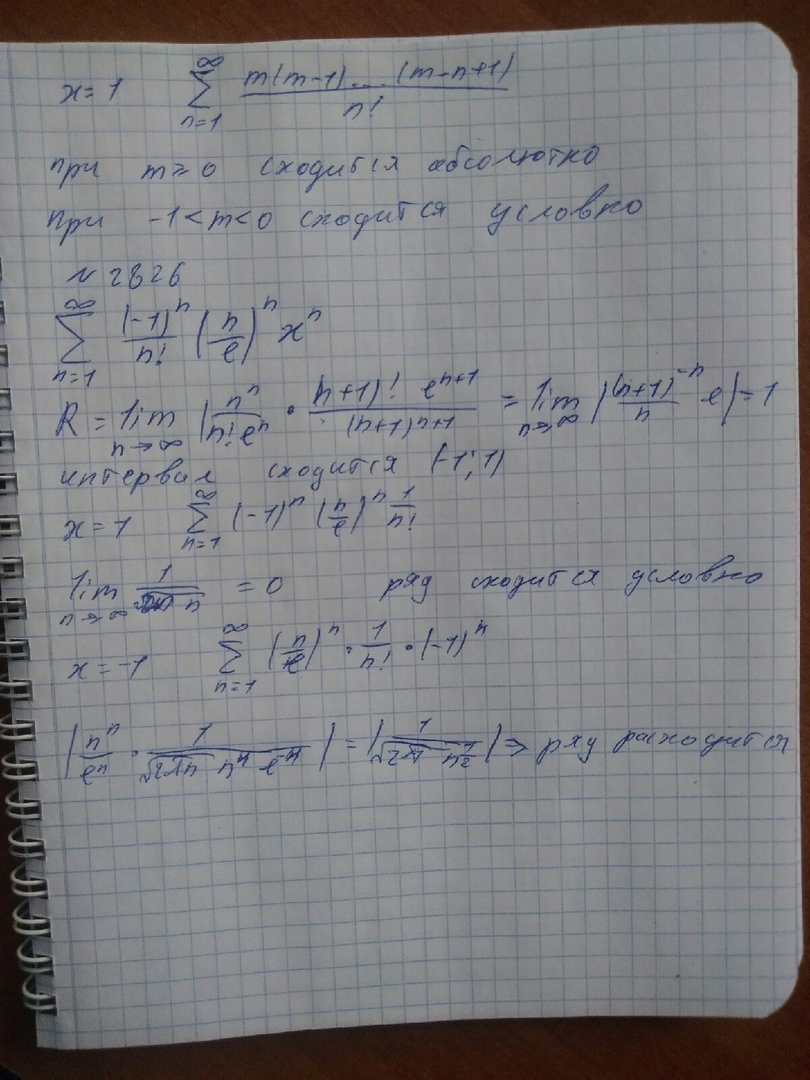 x=1 \sum_{n=1}^{\infty} \frac{m(m-1)...(m-n+1)}{n!}
при m≥0 сходится абсолютно
при -1<m<0 сходится условно
№2826
\sum_{n=1}^{\infty} \frac{(-1)^n}{n!} \left(\frac{n}{e}\right)^n x^n
R = \lim_{n→∞} \left|\frac{n^n}{n!e^n} \cdot \frac{(n+1)! e^{n+1}}{(n+1)^{n+1}}\right| = \lim_{n→∞} \left|\frac{(n+1)^{-n}}{n} e\right| = 1
интервал сходится (-1;1)
x=1 \sum_{n=1}^{\infty} (-1)^n \left(\frac{n}{e}\right)^n \frac{1}{n!}
\lim_{n→∞} \frac{1}{\sqrt{2π} n} = 0 ряд сходится условно
x=-1 \sum_{n=1}^{\infty} \left(\frac{n}{e}\right)^n \cdot \frac{1}{n!} \cdot (-1)^n
\left|\frac{n^n}{e^n} \cdot \frac{1}{\sqrt{2πn} n^n e^{-n}}\right| = \left|\frac{1}{\sqrt{2π} n^{\frac{1}{2}}}\right| ⇒ ряд расходится